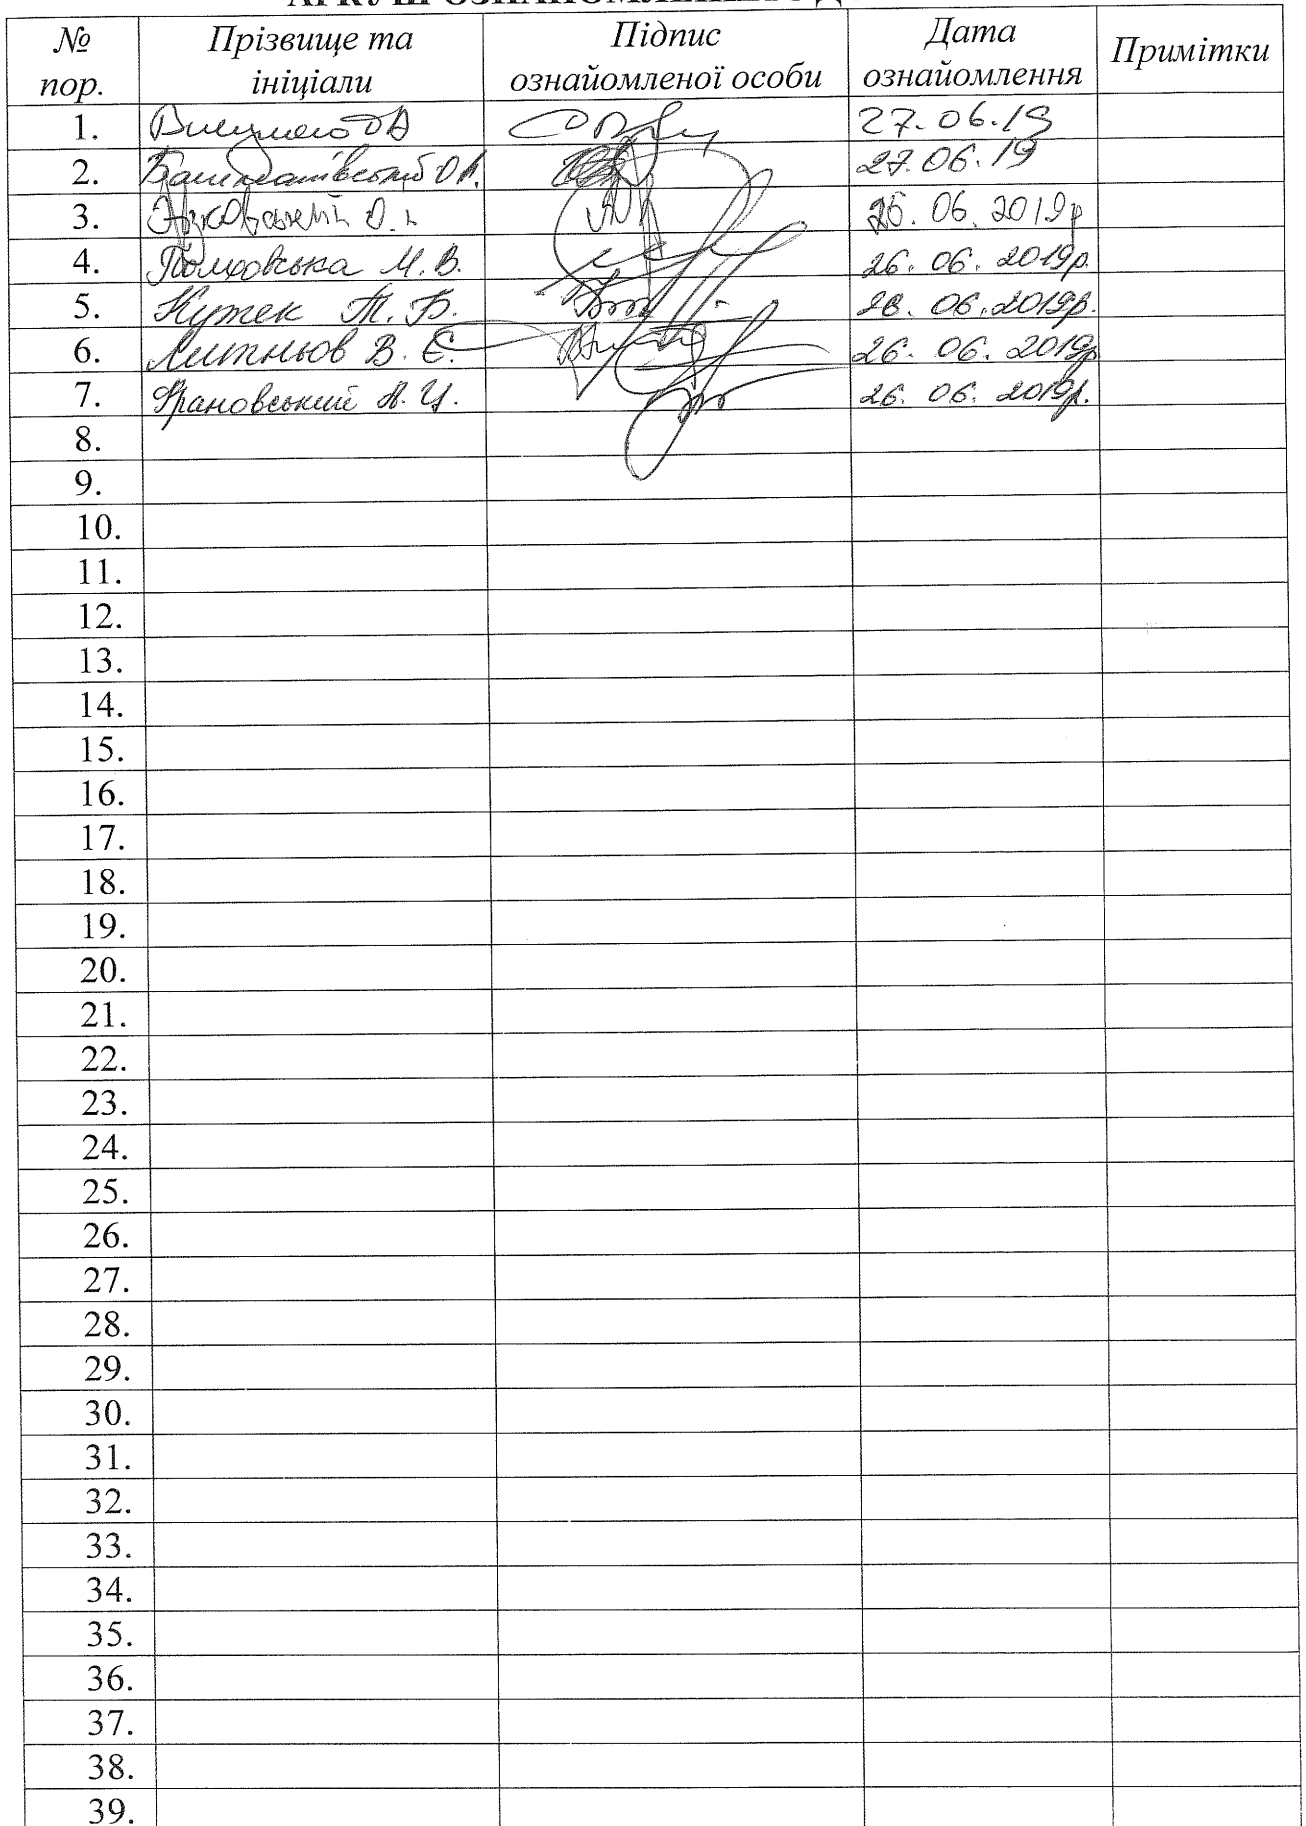 № пор. Прізвище та ініціали Підпис ознайомленої особи Дата ознайомлення Примітки
1. 27.06.19
2. 27.06.19
3. 06.2019р
4. М.В. 26.06.2019р.
5. Кутек Т.Б. 26.06.2019р.
6. Литньов В.Є. 26.06.2019р
7. Ярановський А.Ц. 26.06.2019р.
8.
9.
10.
11.
12.
13.
14.
15.
16.
17.
18.
19.
20.
21.
22.
23.
24.
25.
26.
27.
28.
29.
30.
31.
32.
33.
34.
35.
36.
37.
38.
39.